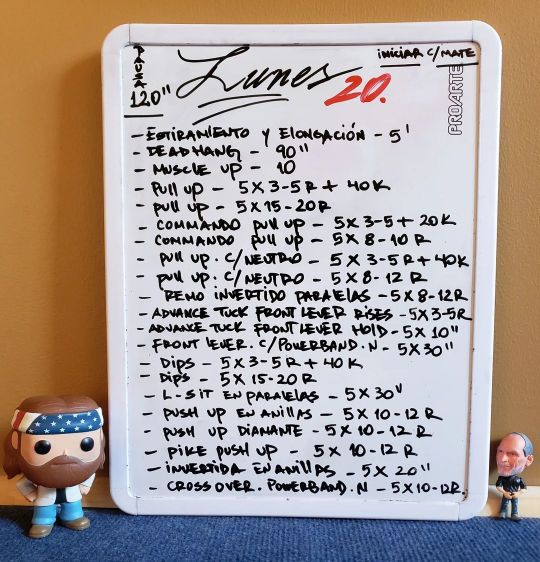 PAUSA
120"
Lunes
20.
INICIAR C/MATE
PROARTE
- ESTIRAMIENTO Y ELONGACIÓN - 5'
- DEADHANG - 90"
- MUSCLE UP - 10
- PULL UP - 5X3-5R + 40K
- PULL UP - 5X15-20R
- COMMANDO PULL UP - 5X3-5 + 20K
- COMMANDO PULL UP - 5X8-10R
- PULL UP. C/NEUTRO - 5X3-5R + 40K
- PULL UP. C/NEUTRO - 5X8-12R
- REMO INVERTIDO PARALELAS - 5X8-12R
- ADVANCE TUCK FRONT LEVER RISES - 5X3-5R
- ADVANCE TUCK FRONT LEVER HOLD - 5X10"
- FRONT LEVER. C/POWERBAND.N - 5X30"
- DIPS - 5X3-5R + 40K
- DIPS - 5X15-20R
- L-SIT EN PARALELAS - 5X30"
- PUSH UP EN ANILLAS - 5X10-12R
- PUSH UP DIAMANTE - 5X10-12R
- PIKE PUSH UP - 5X10-12R
- INVERTIDA EN ANILLAS - 5X20"
- CROSSOVER. POWERBAND.N - 5X10-12R